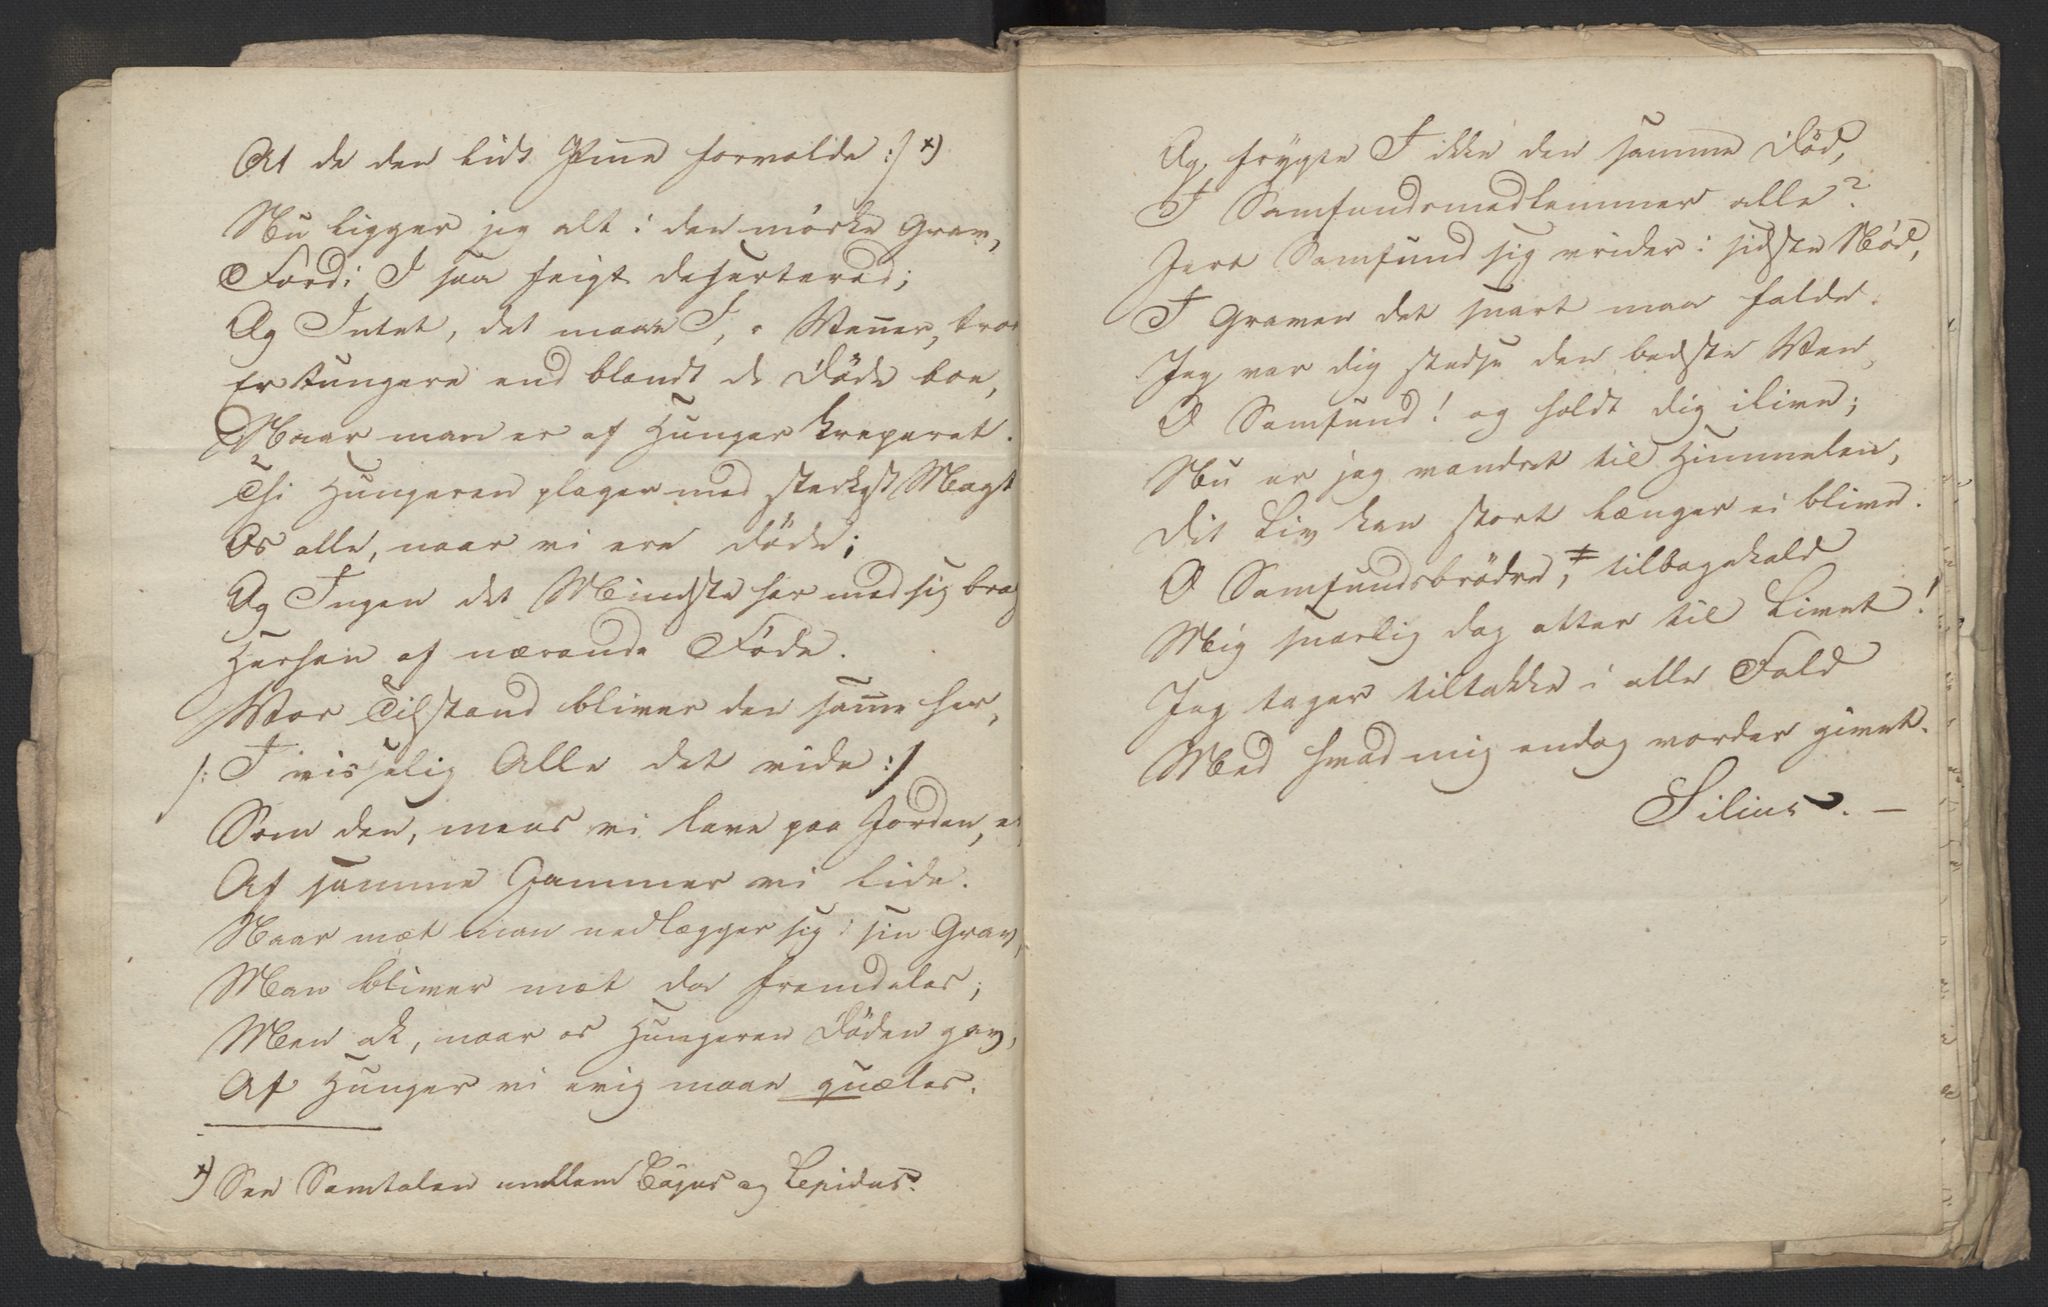 At de den lidt Pine forvolde :/ *)
Nu ligger jeg alt i den mørke Grav,
Fordi I saa feigt deserterede;
Og Intet, det maae I, o Venner, troe
Er tungere end blandt de Døde boe,
Naar man er af Hunger kreperet.
Thi Hungeren plager med sterkest Magt
Os alle, naar vi ere døde;
Og Ingen det Mindste har med sig brag
Herhen af nærende Føde.
Vor Tilstand bliver den samme her,
/: I visselig Alle det vide :/
Som den, mens vi leve paa Jorden, er,
Af samme Jammer vi lide.
Naar mæt man nedlægger sig i sin Grav,
Man bliver mæt da fremdeles;
Men ak, naar os Hungeren Døden gav,
Af Hunger vi evig maae quæles.
*) See Samtalen mellem Cajus og Lepidus.
Og frygte I ikke den samme Død,
I Samfundsmedlemmer alle?
Jert Samfund sig vrider i sidste Nød,
I Graven det snart maa falde.
Jeg var dig stedse den bedste Ven,
O Samfund! og holdt dig ilive;
Nu er jeg vandret til Himmelen,
Dit Liv kan stort længer ei blive.
O Samfundsbrødre, tilbagekald
Mig snarlig dog atter til Livet!
Jeg tager tiltakke i alle Fald
Med hvad mig endog vorder givet.
Silius. —